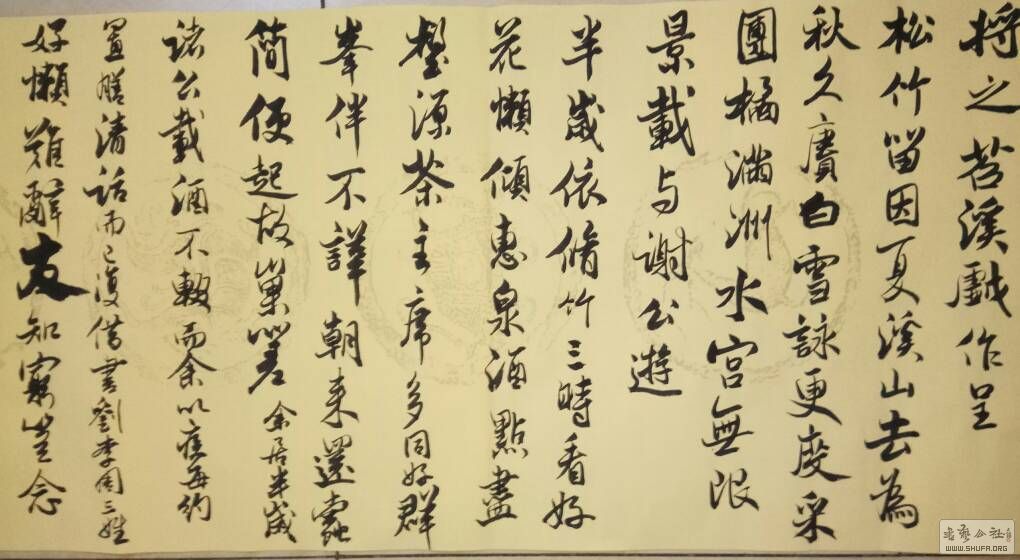 將之苕溪戲作呈
松竹留因夏溪山去為
秋久賡白雪詠更度采
團橘滿洲水宮無限
景載与謝公遊
半歲依脩竹三時看好
花懶傾惠泉酒點盡
壑源茶主席多同好群
峯伴不譁朝來還蠹
簡便起故巢嗟余居半歲
諸公載酒不輟而余以疾每約
置膳清話而已復借書劉李周三姓
好懶難辭友知窮豈念
書藝公社
WWW.SHUFA.ORG